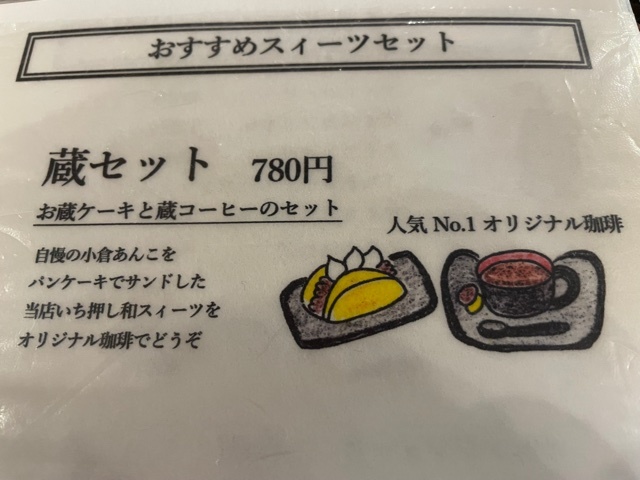 おすすめスィーツセット
蔵セット 780円
お蔵ケーキと蔵コーヒーのセット
人気 No.1 オリジナル珈琲
自慢の小倉あんこを
パンケーキでサンドした
当店いち押し和スィーツを
オリジナル珈琲でどうぞ